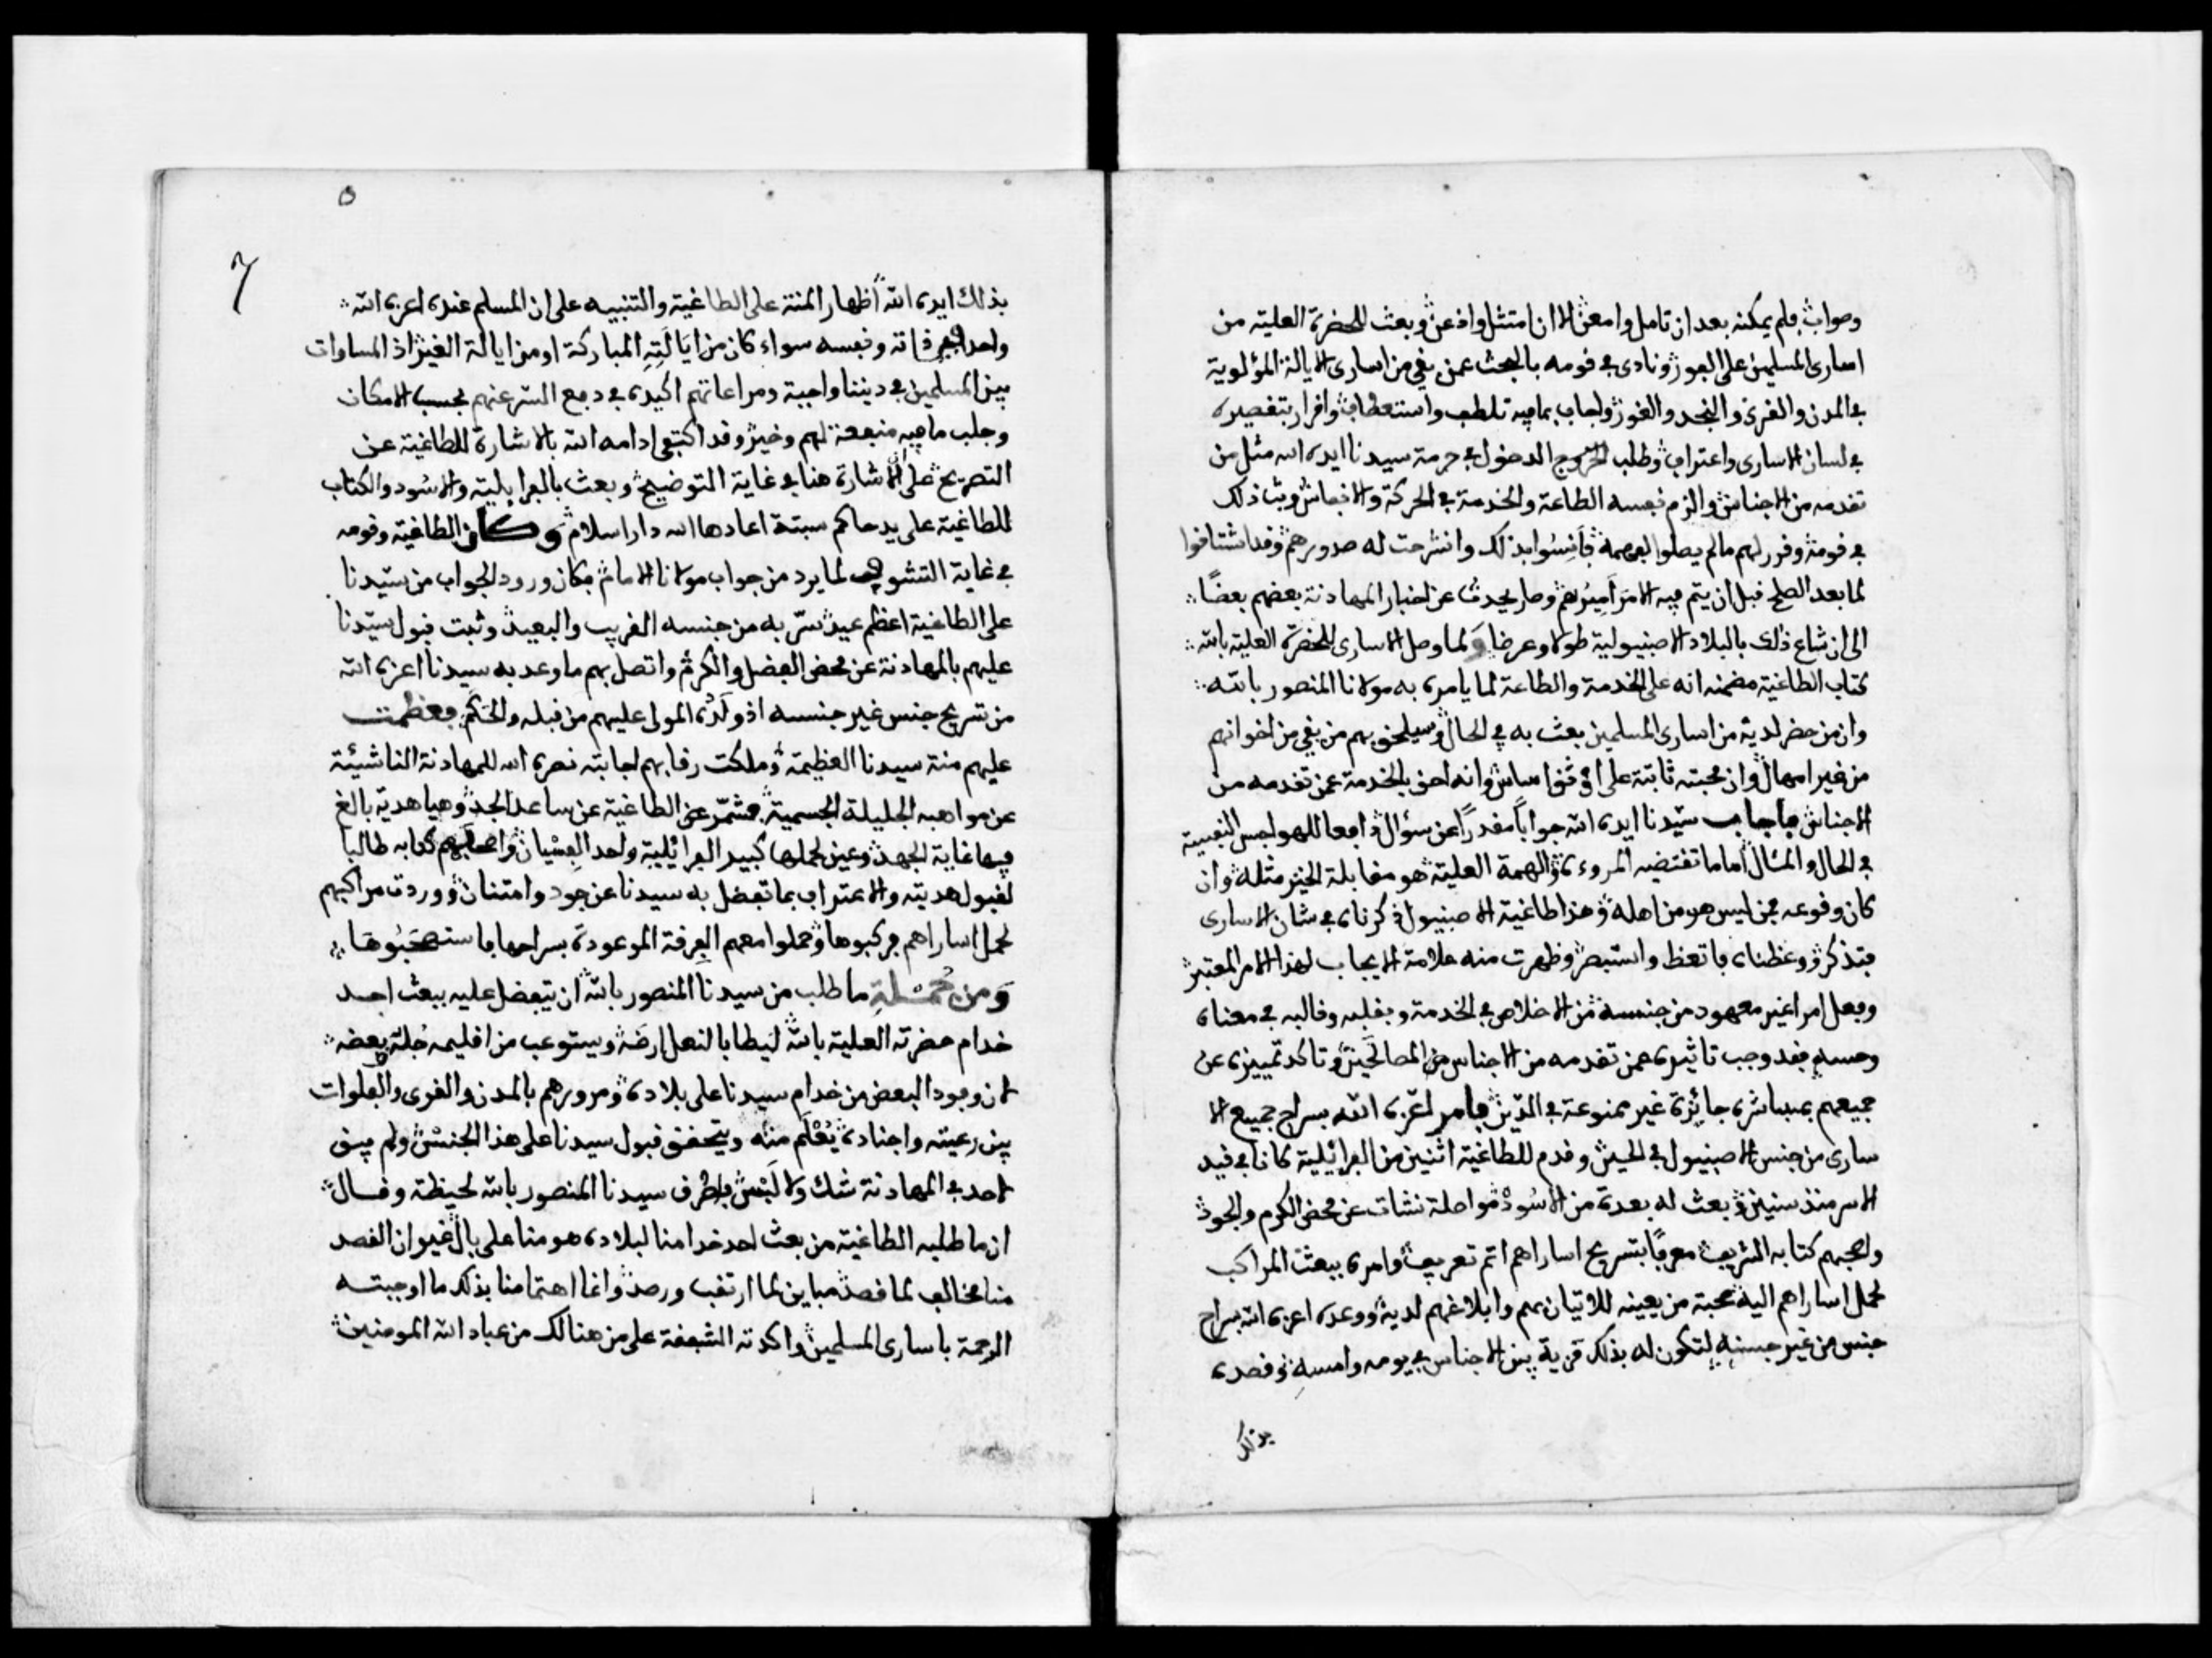 وصواب فلم يمكنه بعد ان تامل وامعن الا ان امتثل واذعن وبعث للحضرة العلية من
اسارى المسلمين على الفور ونادى في قومه بالبحث عمن بقي من اسارى الايالة المؤلوية
في المدن والقرى والنجد والغور واجاب بما فيه تلطف واستعطاف واقرار بتقصيره
في لسان الاسارى واعتراف وطلب الدخول في حرمة سيدنا ايده الله مثل من
تقدمه من الاجناس والزم نفسه الطاعة والخدمة في الحركة والانفاس وبث ذلك
في قومه وقرر لهم ما لم يصلوا لفهمه فَأَنِسُوا بذلك وانشرحت له صدورهم وقد اشتاقوا
لما بعد الصلح قبل ان يتم فيه الامر اميرهم وصار يحدث عن اخبار المهادنة بعضهم بعضًا
الى ان شاع ذلك بالبلاد الاصنيولية طولا وعرضا وَلما وصل الاسارى للحضرة العلية بالله
كتاب الطاغية مضمنه انه على الخدمة والطاعة لما يامره به مولانا المنصور بالله
وان من حضر لديه من اسارى المسلمين بعث به في الحال وسيلحق بهم من بقي من اخوانهم
من غير امهال وان محبته ثابتة على اقوى اساس وانه احق بالخدمة عمن تقدمه من
الاجناس فاجاب سيدنا ايده الله جوابا مقدرًا عن سؤال دافعا للهواجس النفسية
في الحال والمئال اما ما تقتضيه المروءة والهمة العلية هو مقابلة الخير مثله وان
كان وقوعه ممن ليس هو من اهله وهذا طاغية الاصنيول ذكرناه في شان الاسارى
فتذكر ووعظناه فاتعظ واستبصر وظهرت منه علامة الايجاب لهذا الامر المعتبر
وفعل امرا غير معهود من جنسه من الاخلاص في الخدمة وبقلبه وقالبه في معناه
وحسه فقد وجب تاثيره عمن تقدمه من الاجناس من المصالحين وتاكد تمييزه عن
جميعهم بمباشرة جائزة غير ممنوعة في الدين فامر اعزه الله بسراح جميع الا
سارى من جنس الاصنيول في الحين وقدم للطاغية اثنين من الفرائلية كانا في قيد
الاسر منذ سنين وبعث له بعدة من الاسُود مواصلة نشات عن محض الكرم والجود
واصحبهم كتابه الشريف معرفًا بتسريح اساراهم اتم تعريف وامره ببعث المراكب
لحمل اساراهم اليه صحبة من يعينه للاتيان بهم وابلاغهم لديه ووعده اعزه الله بسراح
جنس من غير جنسه لتكون له بذلك مزية بين الاجناس في يومه وامسه وقصده
بذلك
٥
7
بذلك ايده الله اظهار المنة على الطاغية والتنبيه على ان المسلم عنده اعزه الله
واحد في ذاته ونفسه سواء كان من ايَالَتِهِ المباركة او من ايالة الغير اذ المساوات
بين المسلمين في ديننا واجبة ومراعاتهم اكيدة في دفع الشر عنهم بحسب الامكان
وجلب ما فيه منفعة لهم وخير وقد اكتفى ادامه الله بالاشارة للطاغية عن
التصريح على ان الاشارة هنا في غاية التوضيح وبعث بالفرايلية والاسُود والكتاب
للطاغية على يد حاكم سبتة اعادها الله دار اسلام وكان الطاغية وقومه
في غاية التشوف لما يرد من جواب مولانا الامام فكان ورود الجواب من سيدنا
على الطاغية اعظم عيد سرّ به من جنسه القريب والبعيد وثبت قبول سيدنا
عليهم بالمهادنة عن محض الفضل والكرم واتصل بهم ما وعد به سيدنا اعزه الله
من تسريح جنس غير جنسه اذ ولّاه المولى عليهم من قبله والحكم فعظمت
عليهم منة سيدنا العظيمة وملكت رقابهم اجابته نصره الله للمهادنة الناشئة
عن مواهبه الجليلة الجسمية فشمّر عن الطاغية عن ساعد الجد وهيا هدية بالغ
فيها غاية الجهد وعين لحملها كبير الفرائلية واحد الفِسْيان واصحابهم كتابه طالبا
لقبول هديته والاعتراف بما تفضل به سيدنا عن جود وامتنان ووردت مراكبهم
لحمل اساراهم فركبوها وحملوا معهم الفرقة الموعودة بسراحها فاستصحَبُوهَا
وَمن جُمْلَةِ ما طلب من سيدنا المنصور بالله ان يتفضل عليه ببعث احد
خدام حضرته العلية بالله ليطا بالنعل ارضه ويستوعب من اقليمه جُلّه بعضه
لان وجود البعض من خدام سيدنا على بلاده ومرورهم بالمدن والقرى والفلوات
بين رعيته واجناده يُعْلَم منه ويتحقق قبول سيدنا على هذا الجنس ولم يبق
لاحد في المهادنة شك ولا لَبْس فاطرف سيدنا المنصور بالله لحيظة وقال
ان ما طلبه الطاغية من بعث احد خدامنا لبلاده هو منا على بال غير ان القصد
منا مخالف لما قصد مباين لما ارتقب ورصد وانما اهتمامنا بذلك ما اوجبته
الرحمة باسارى المسلمين واكدته الشفقة على من هنالك من عباد الله المومنين